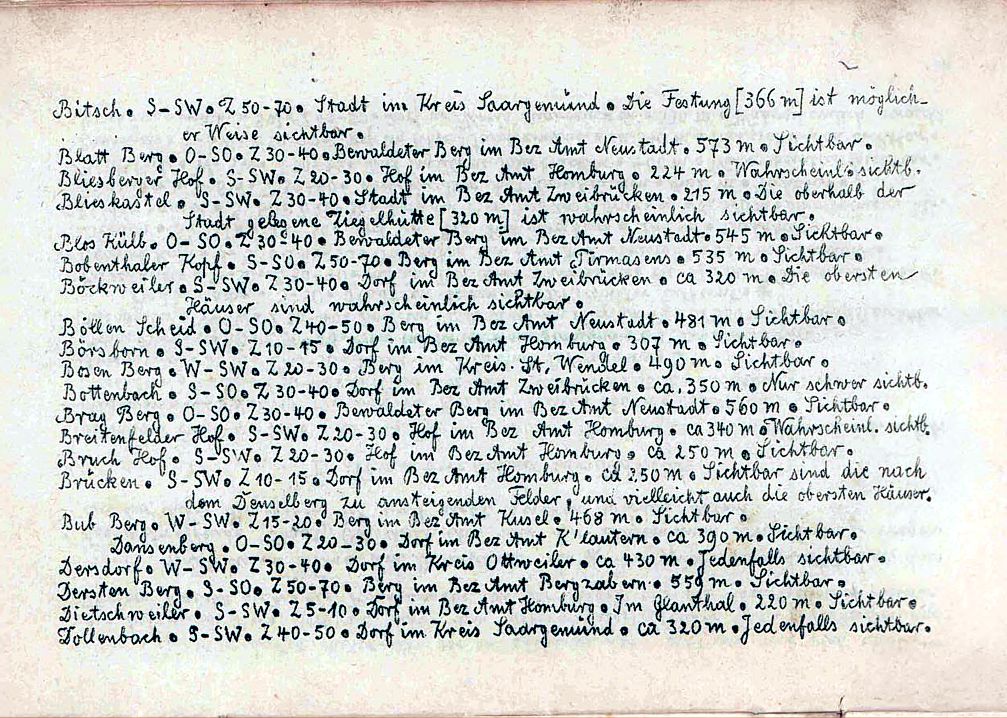 Bitsch. S-SW. Z 50-70. Stadt im Kreis Saargemünd. Die Festung [366 m] ist möglich-
er Weise sichtbar.
Blatt Berg. O-SO. Z 30-40. Bewaldeter Berg im Bez Amt Neustadt. 573 m. Sichtbar.
Bliesberger Hof. S-SW. Z 20-30. Hof im Bez Amt Homburg. 224 m. Wahrscheinl. sichtb.
Blieskastel. S-SW. Z 30-40. Stadt im Bez Amt Zweibrücken. 215 m. Die oberhalb der
Stadt gelegene Ziegelhütte [320 m] ist wahrscheinlich sichtbar.
Blos Külb. O-SO. Z 30-40. Bewaldeter Berg im Bez Amt Neustadt. 545 m. Sichtbar.
Bobenthaler Kopf. S-SO. Z 50-70. Berg im Bez Amt Pirmasens. 535 m. Sichtbar.
Böckweiler. S-SW. Z 30-40. Dorf im Bez Amt Zweibrücken. ca 320 m. Die obersten
Häuser sind wahrscheinlich sichtbar.
Böllen Scheid. O-SO. Z 40-50. Berg im Bez Amt Neustadt. 481 m. Sichtbar.
Börsborn. S-SW. Z 10-15. Dorf im Bez Amt Homburg. 307 m. Sichtbar.
Bosen Berg. W-SW. Z 20-30. Berg im Kreis St. Wendel. 490 m. Sichtbar.
Bottenbach. S-SO. Z 30-40. Dorf im Bez Amt Zweibrücken. ca. 350 m. Nur schwer sichtb.
Brag Berg. O-SO. Z 30-40. Bewaldeter Berg im Bez Amt Neustadt. 560 m. Sichtbar.
Breitenfelder Hof. S-SW. Z 20-30. Hof im Bez Amt Homburg. ca 340 m. Wahrscheinl. sichtb.
Bruch Hof. S-SW. Z 20-30. Hof im Bez Amt Homburg. ca 250 m. Sichtbar.
Brücken. S-SW. Z 10-15. Dorf im Bez Amt Homburg. ca 250 m. Sichtbar sind die nach
dem Denselberg zu ansteigenden Felder, und vielleicht auch die obersten Häuser.
Bub Berg. W-SW. Z 15-20. Berg im Bez Amt Kusel. 468 m. Sichtbar.
Dansenberg. O-SO. Z 20-30. Dorf im Bez Amt K'lautern. ca 390 m. Sichtbar.
Dersdorf. W-SW. Z 30-40. Dorf im Kreis Ottweiler. ca 430 m. Jedenfalls sichtbar.
Dersten Berg. S-SO. Z 50-70. Berg im Bez Amt Bergzabern. 559 m. Sichtbar.
Dietschweiler. S-SW. Z 5-10. Dorf im Bez Amt Homburg. Im Glanthal. 220 m. Sichtbar.
Dollenbach. S-SW. Z 40-50. Dorf im Kreis Saargemünd. ca 320 m. Jedenfalls sichtbar.